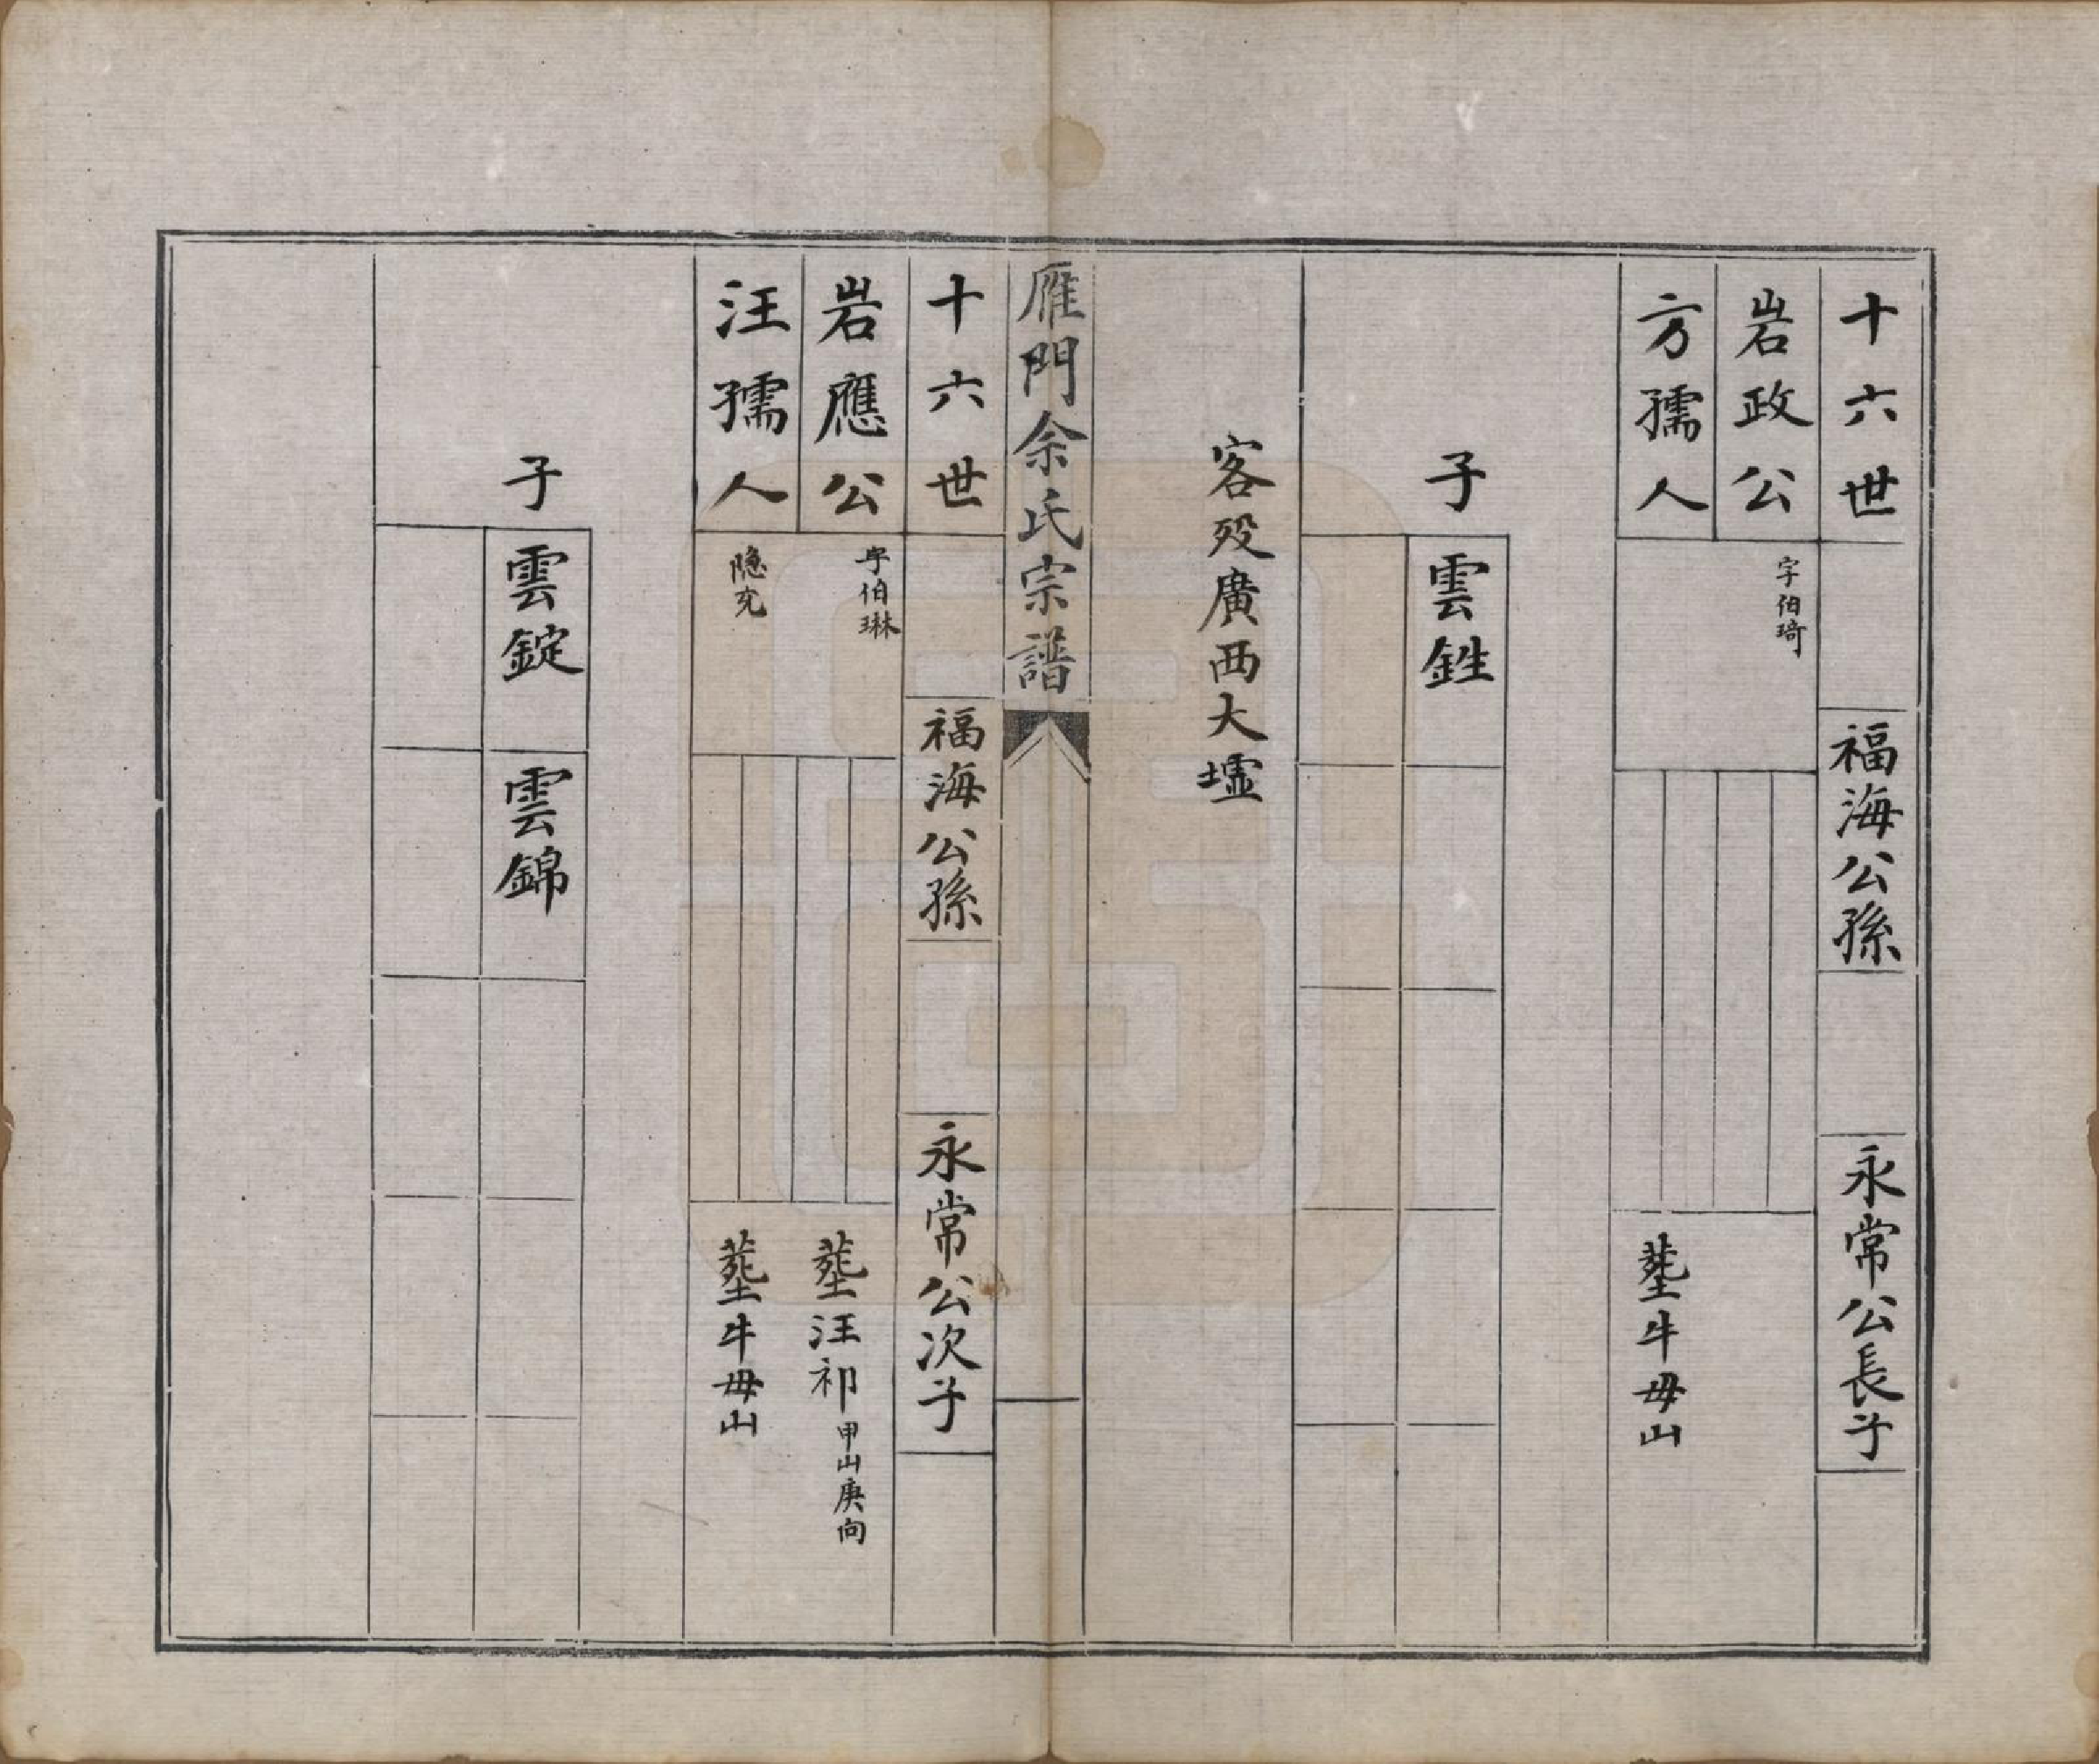 十六世
福海公孫
永常公長子
岩政公
字伯琦
方孺人
葬牛毋山
子
雲鉎
客歿廣西大墟
雁門余氏宗譜
十六世
福海公孫
永常公次子
岩應公
字伯琳
葬汪祁甲山庚向
汪孺人
隐充
葬牛毋山
子
雲錠
雲錦